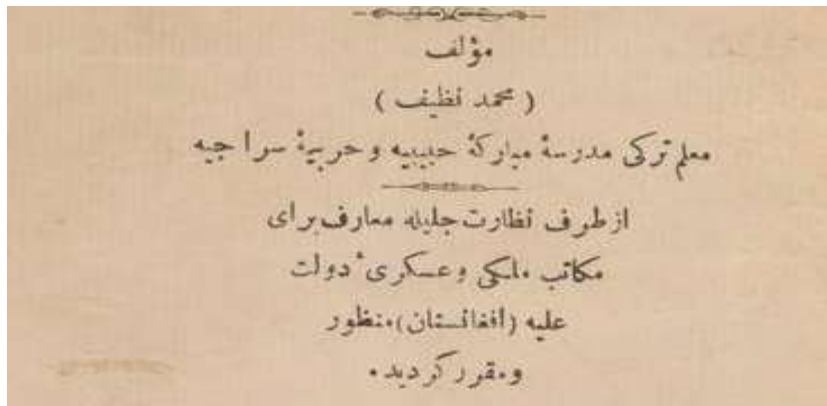 مؤلف
( محمد نظیف )
معلم ترکی مدرسهٔ مبارکهٔ حبیبیه و حربیهٔ سراجیه
از طرف نظارت جلیله معارف برای
مکاتب ملکی و عسکریٔ دولت
علیه (افغانستان) منظور
و مقرر گردید.